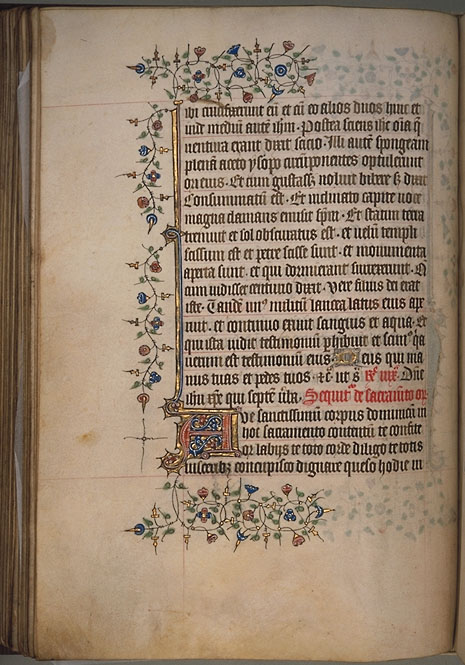 ibi crucifixerunt eū et cū eo alios duos hinc et
inde mediū autē ihm · Postea sciens ihc oīa q̄
ventura erant dixit sicio · Illi autē spongeam
plenā aceto ysopo circūponentes optulerunt
ori eius · Et cum gustass; noluit bibere s; dixit
Consummatū est · Et inclinato capite voce
magna clamans emisit spm̄ · Et statim terra
tremuit et sol obscuratus est · et velū templi
scissum est et petre scisse sunt · et monumenta
aperta sunt · et qui dormierant surrexerunt ·
cum vidisset centurio dixit · vere filius dei erat
iste · Tandē unꝰ militū lancea latus eius ape
ruit · et continuo exivit sanguis et aqua · Et
qui ista vidit testimoniū phibuit et scimꝰ qa
verum est testimoniū eius Deus qui ma
nus tuas et pedes tuos · ut
ihu septē
Ave sanctissimū corpus dominicū in
hoc sacramento contentū te confite
or labijs te toto corde diligo te totis
visceribꝫ concupisco dignare queso hodie in